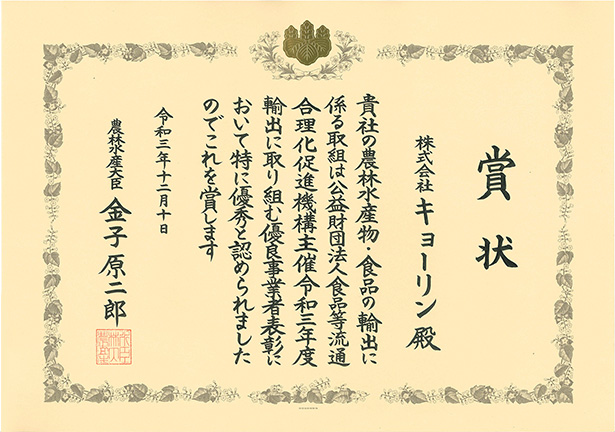 賞状
株式会社 キョーリン 殿
貴社の農林水産物・食品の輸出に
係る取組は公益財団法人食品等流通
合理化促進機構主催令和三年度
輸出に取り組む優良事業者表彰に
おいて特に優秀と認められました
のでこれを賞します
令和三年十二月十日
農林水産大臣 金子原二郎